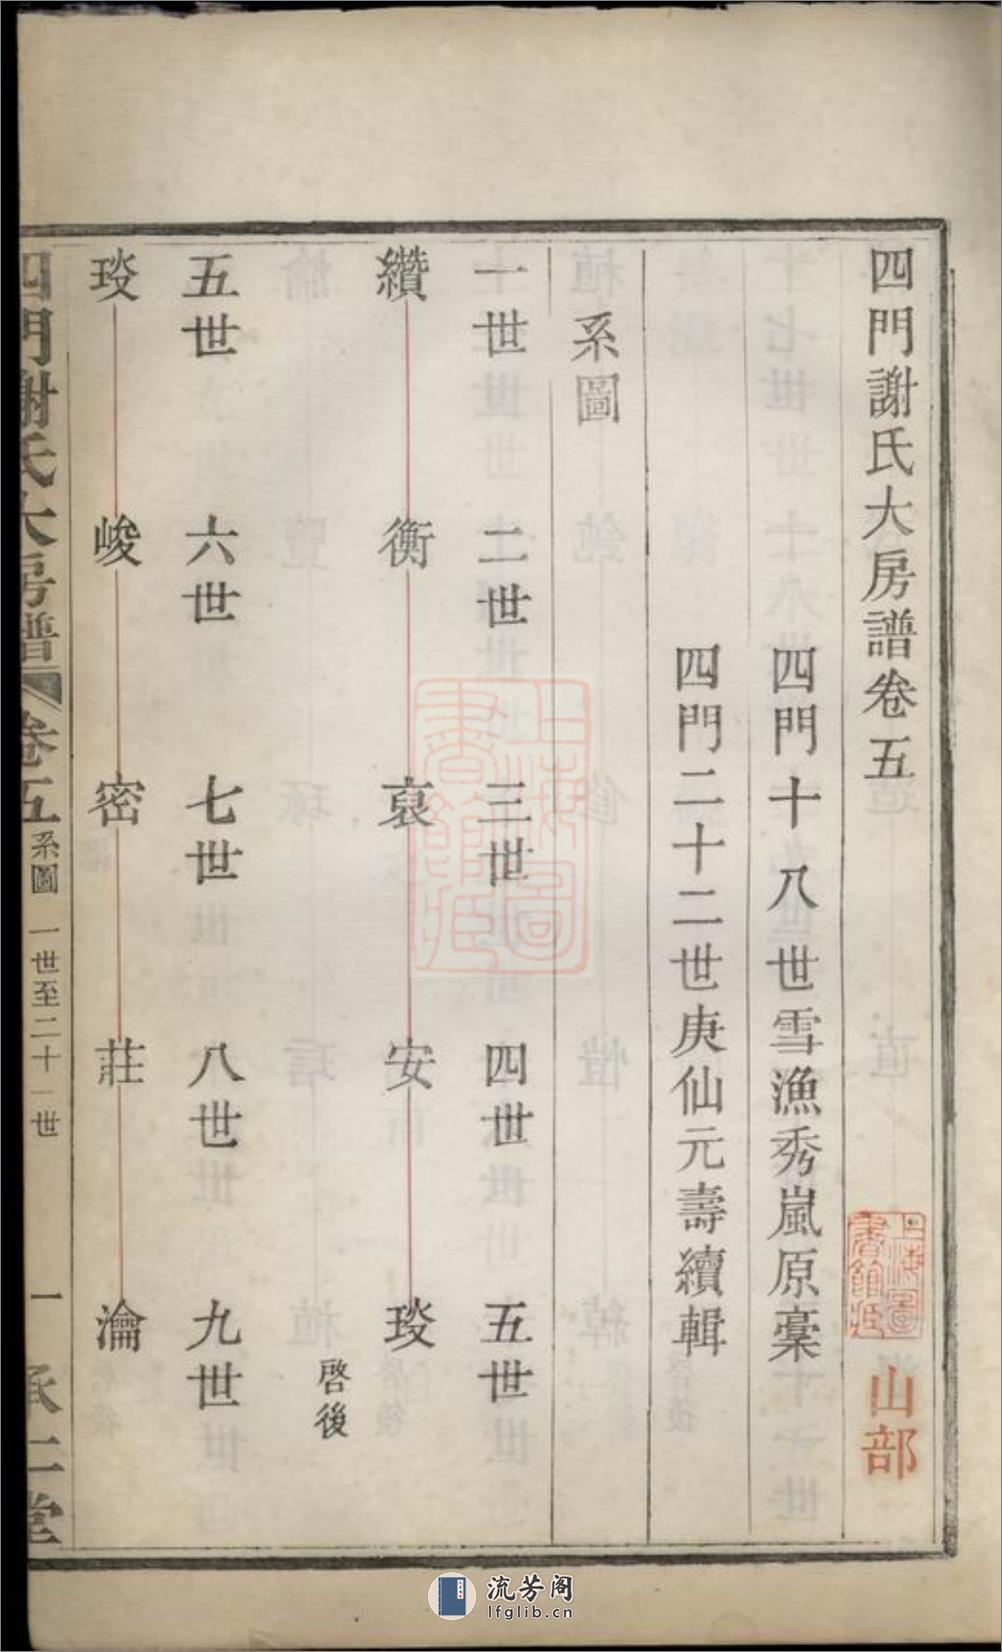 四門謝氏大房譜卷五
山部
四門十八世雪漁秀嵐原稾
四門二十二世庚仙元壽續輯
系圖
一世 二世 三世 四世 五世
纘 衡 裒 安 琰
啓後
五世 六世 七世 八世 九世
琰 峻 密 莊 瀹
四門謝氏大房譜 卷五 系圖 一世至二十一世 一 承仁堂
上海圖書館藏
上海圖書館藏
流芳阁
lfglib.cn